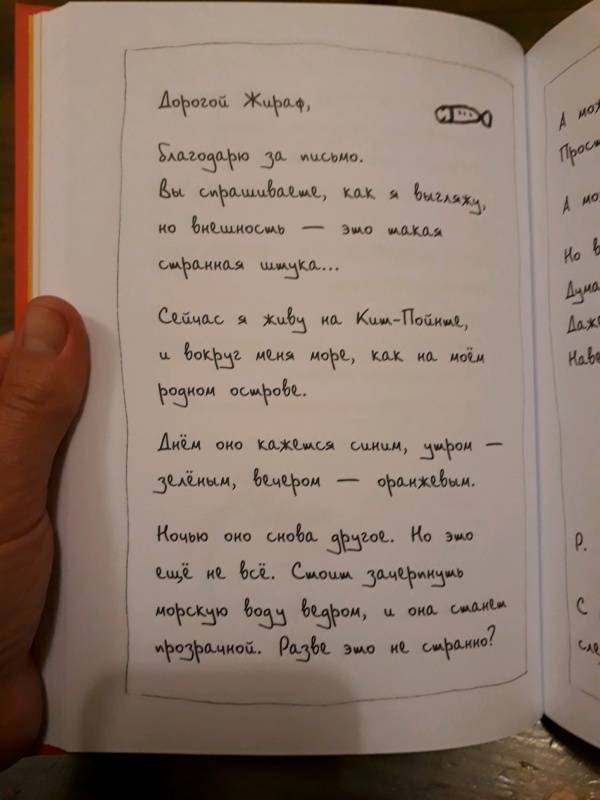 Дорогой Жираф,
Благодарю за письмо.
Вы спрашиваете, как я выгляжу,
но внешность — это такая
странная штука...
Сейчас я живу на Кит-Пойнте,
и вокруг меня море, как на моём
родном острове.
Днём оно кажется синим, утром —
зелёным, вечером — оранжевым.
Ночью оно снова другое. Но это
ещё не всё. Стоит зачерпнуть
морскую воду ведром, и она станет
прозрачной. Разве это не странно?
А мож
Прост
А мо
Но в
Дума
Даже
Наве
P.
С
сле